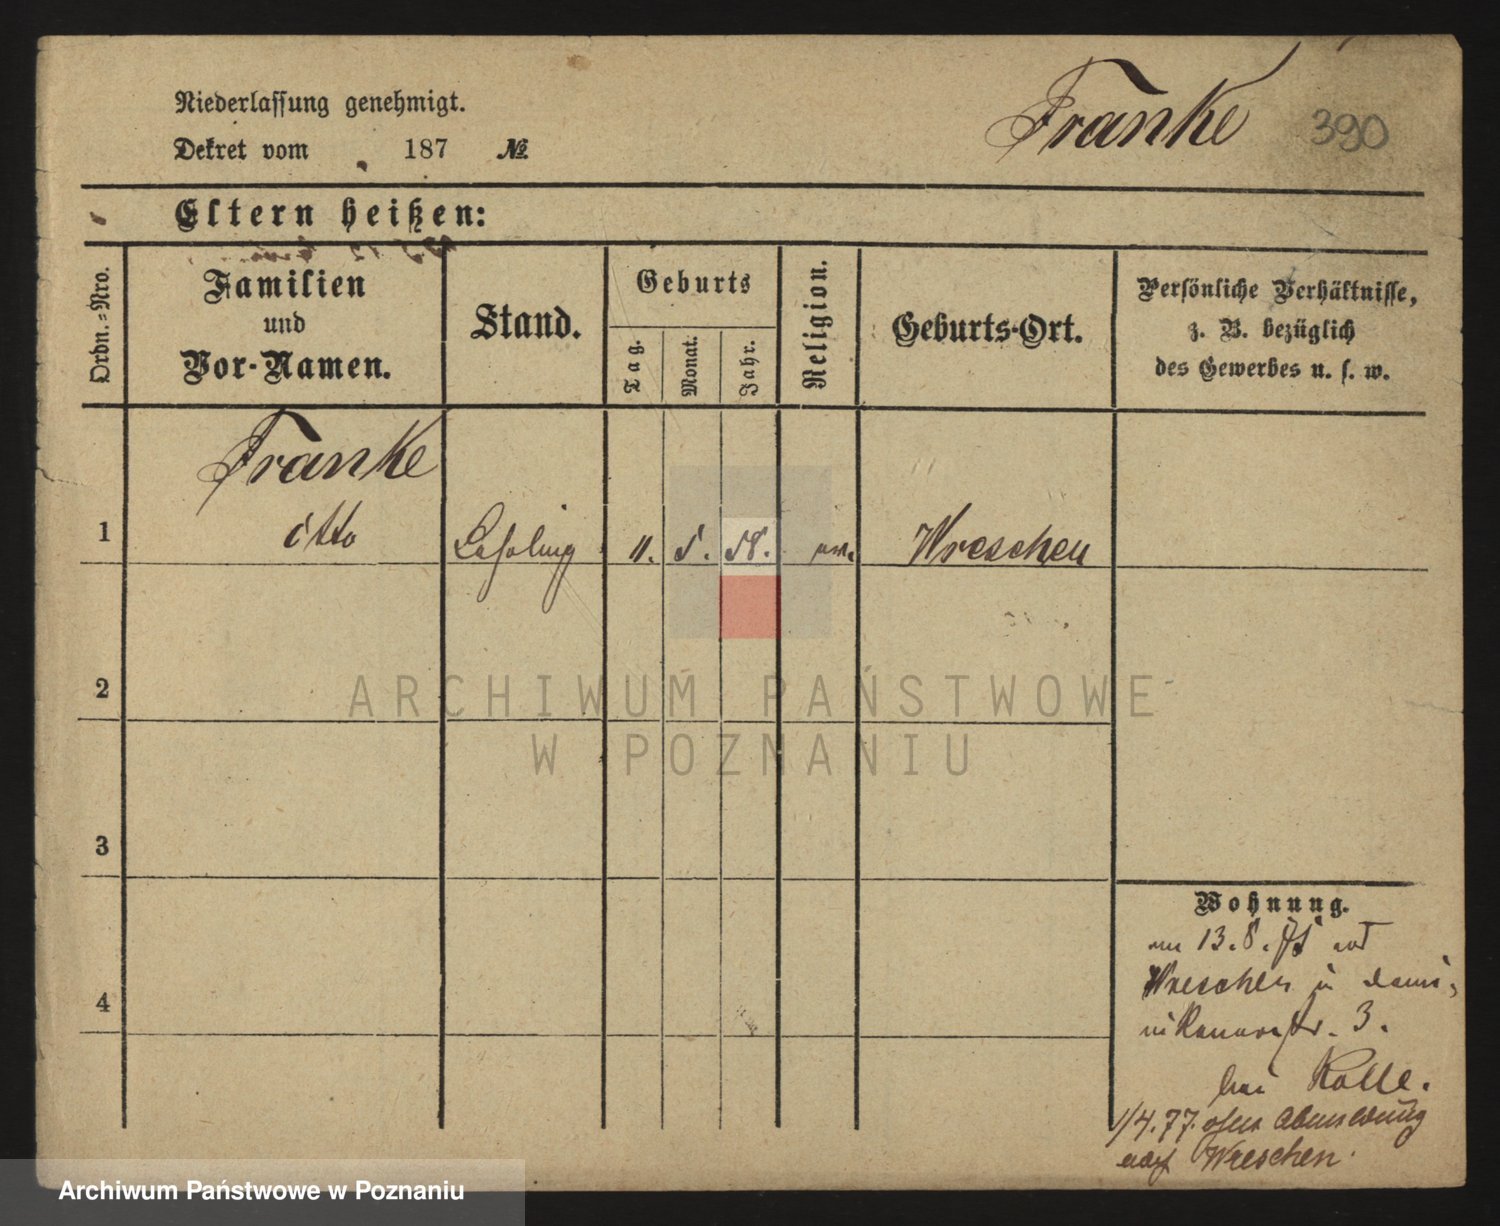 Niederlassung genehmigt.
Dekret vom 187 №
Franke 390
Eltern heißen:
Ordn.-Nro.
Familien
und
Vor-Namen.
Stand.
Geburts
Tag.
Monat.
Jahr.
Religion.
Geburts-Ort.
Persönliche Verhältnisse,
z. B. bezüglich
des Gewerbes u. s. w.
Franke
1 Otto Lehrling 11. 5. 58. ev. Wreschen
2
3
4
ARCHIWUM PAŃSTWOWE
W POZNANIU
Wohnung.
13.8.75
Wreschen in Domi-
nikanerstr. 3.
bei Kolle.
1/4.77. ohne Abmeldung
nach Wreschen.
Archiwum Państwowe w Poznaniu